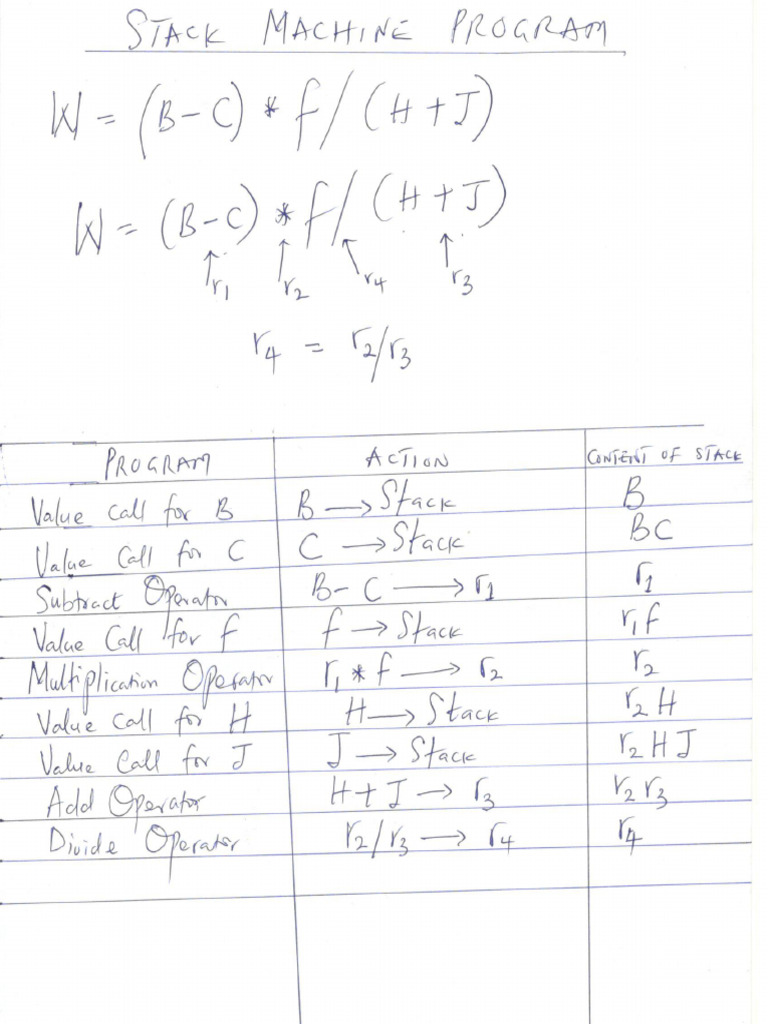 STACK MACHINE PROGRAM
W = (B-C) * f / (H+J)
W = (B-C) * f / (H+J)
↑r1 ↑r2 ↖r4 ↑r3
r4 = r2/r3
PROGRAM ACTION CONTENT OF STACK
Value call for B B → Stack B
Value Call for C C → Stack BC
Subtract Operator B-C → r1 r1
Value Call for f f → Stack r1f
Multiplication Operator r1 * f → r2 r2
Value Call for H H → Stack r2H
Value Call for J J → Stack r2HJ
Add Operator H+J → r3 r2r3
Divide Operator r2/r3 → r4 r4